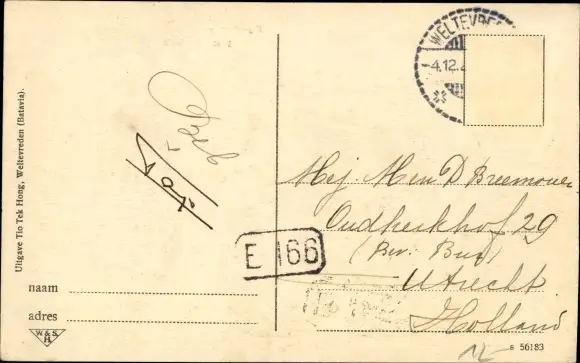 Uitgave Tio Tek Hong, Weltevreden (Batavia).
WELTEVREDEN
-4.12.2
Mej. Men D Breemouer
Oudkerkhof 29
(Bov. Bur)
Utrecht
Holland
E 166
naam
adres
W.& S.
H
s 56183